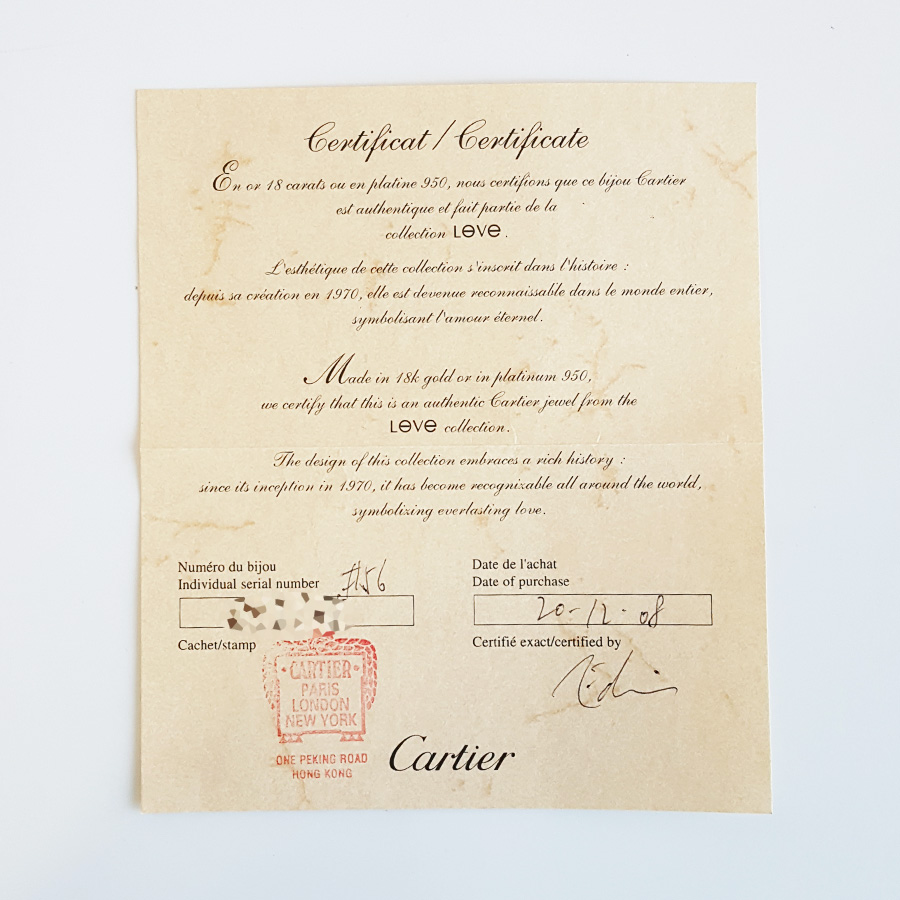 Certificat / Certificate
En or 18 carats ou en platine 950, nous certifions que ce bijou Cartier
est authentique et fait partie de la
collection LOVE.
L'esthétique de cette collection s'inscrit dans l'histoire :
depuis sa création en 1970, elle est devenue reconnaissable dans le monde entier,
symbolisant l'amour éternel.
Made in 18k gold or in platinum 950,
we certify that this is an authentic Cartier jewel from the
LOVE collection.
The design of this collection embraces a rich history :
since its inception in 1970, it has become recognizable all around the world,
symbolizing everlasting love.
Numéro du bijou
Individual serial number #56
Date de l'achat
Date of purchase
20-12-08
Cachet/stamp
Certifié exact/certified by
CARTIER
PARIS
LONDON
NEW YORK
ONE PEKING ROAD
HONG KONG
Cartier